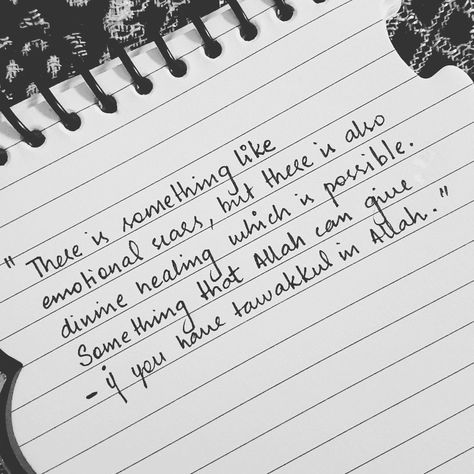 "There is something like
emotional scars, but there is also
divine healing which is possible.
Something that Allah can give
- if you have tawakkul in Allah."